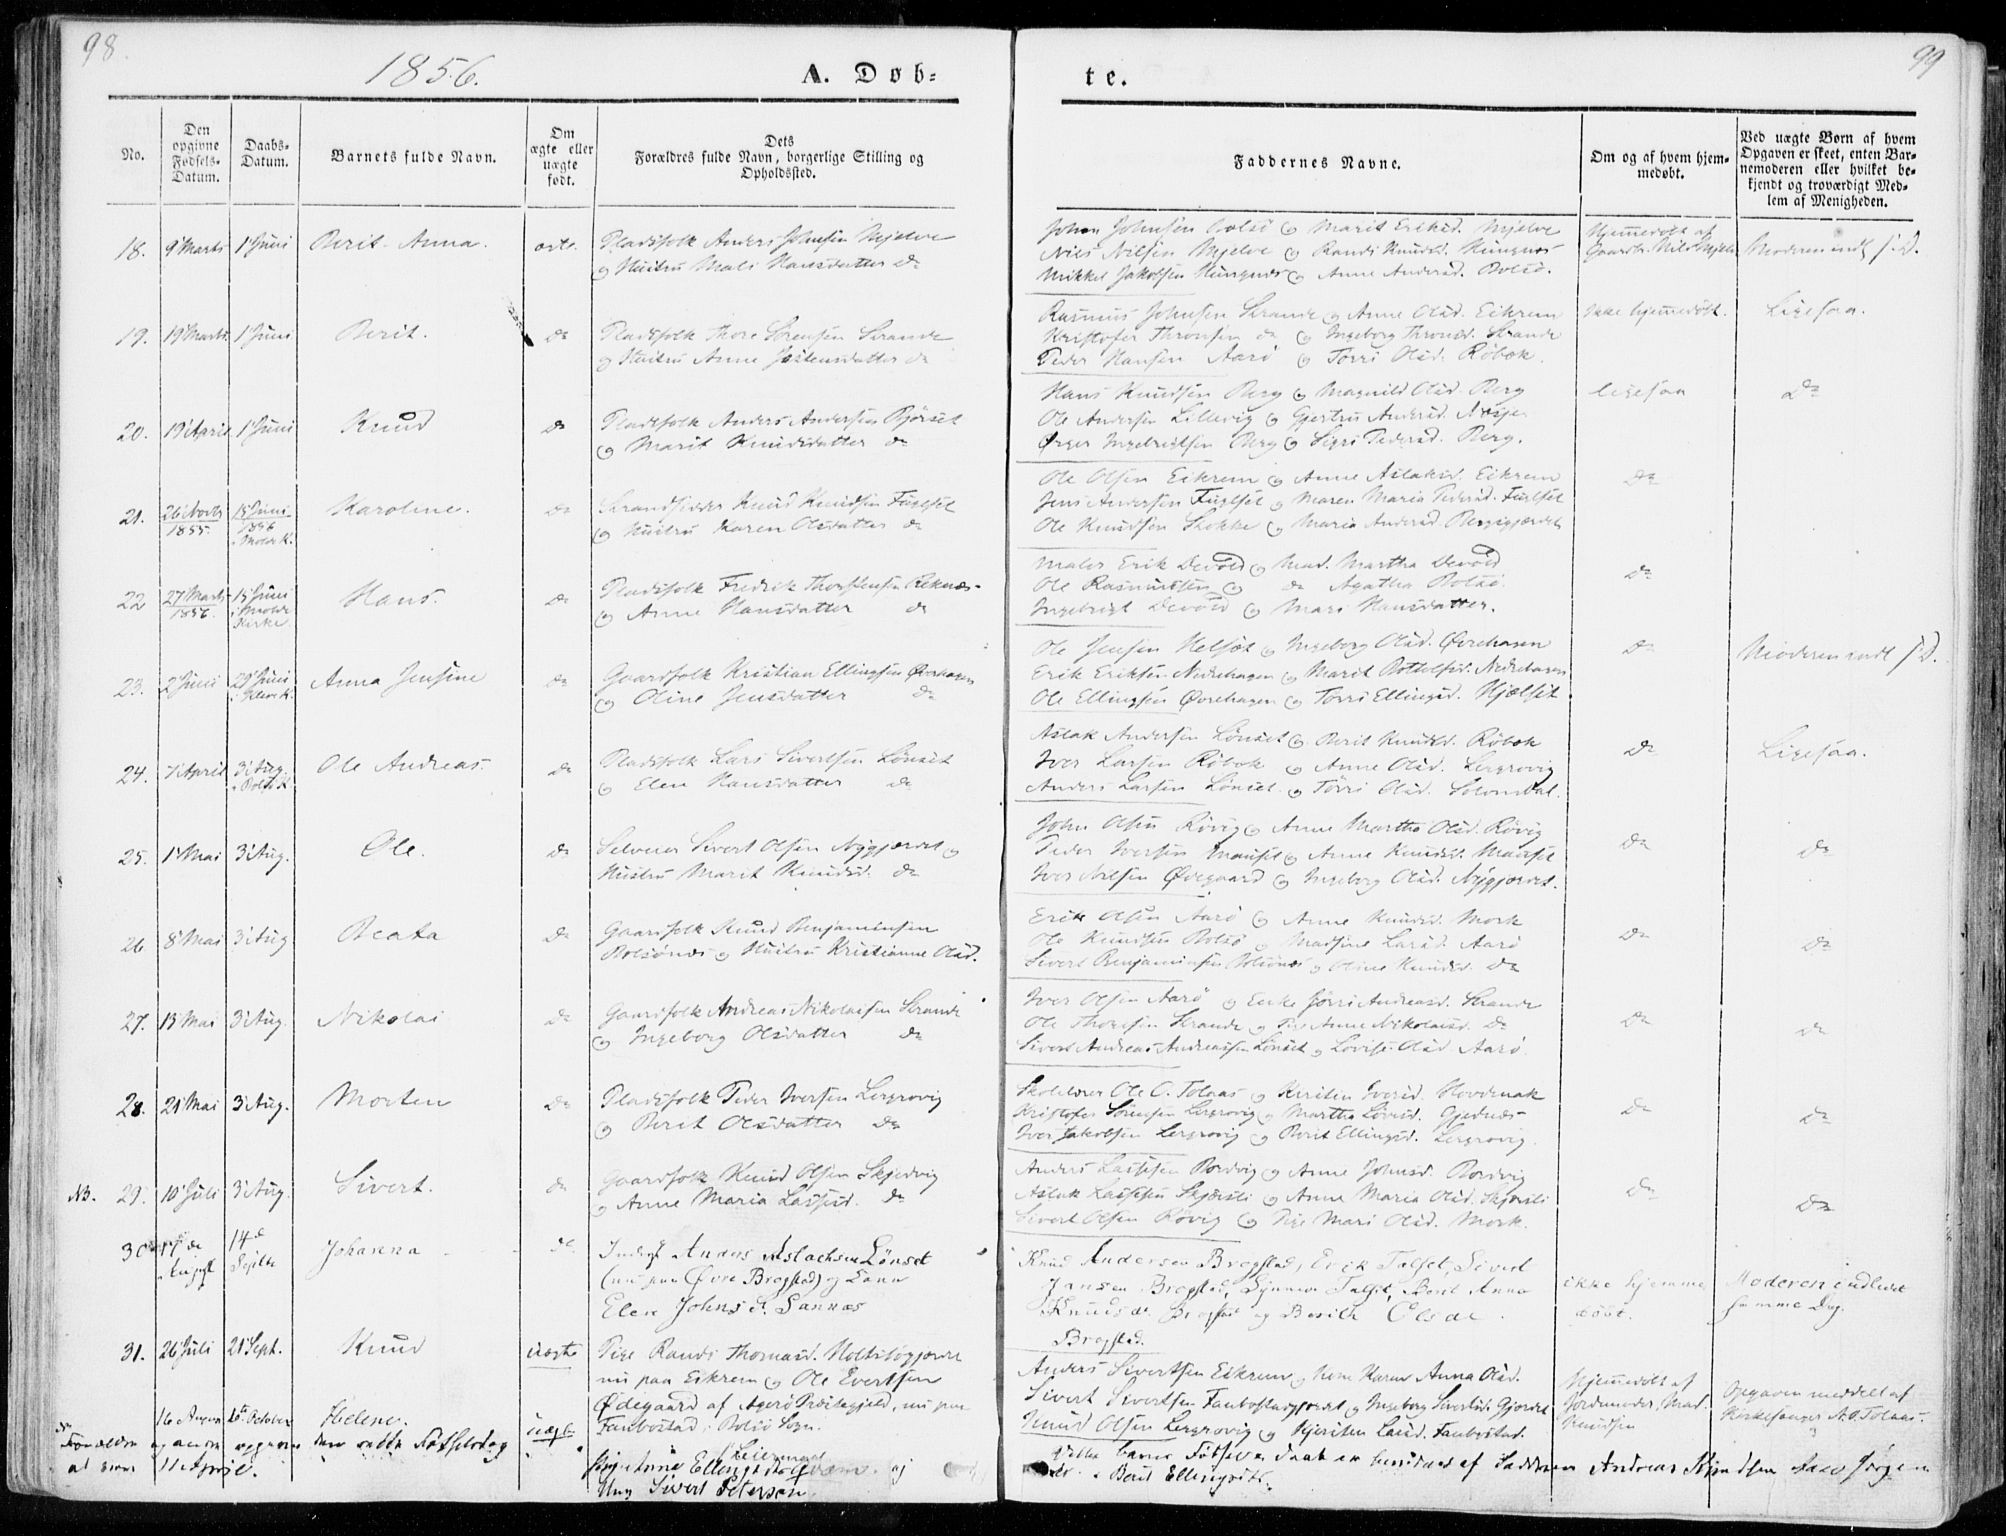 98.
99
1856.
A. Døb-
te.
No.
Den opgivne Fødsels-Datum.
Daabs-Datum.
Barnets fulde Navn.
Om ægte eller uægte født.
Dets Forældres fulde Navn, borgerlige Stilling og Opholdssted.
Faddernes Navne.
Om og af hvem hjemmedøbt.
Ved uægte Børn af hvem Opgaven er skeet, enten Barnemoderen eller hvilket bekjendt og troværdigt Medlem af Menigheden.
18. 9 Marts 1 Juni Berit Anna.
Pladsfolk Anders Johnsen Mjelve
og Hustru Mali Hansdatter do
John Johnsen Bolsø og Marit Eriksd. Mjelve
Nils Nilsen Mjelve og Randi Knudsd. Hungnes
Mikkel Jakobsen Hungnes og Anne Andersd. Bolsø.
Hjemmedøbt af
Gaardbr. Nils Mjelve
Moderen indl. s. D.
19. 19 Marts 1 Juni Berit. do
Pladsfolk Thore Sørensen Strande
og Hustru Anne Jostensdatter do
Rasmus Johnsen Strande og Anne Olsd. Eikrem
Kristofer Thronsen do og Ingeborg Thronsd. Strande
Peder Hansen Aarø og Torri Olsd. Røbek.
Ikke hjemmedøbt.
Ligesaa.
20. 19 April 1 Juni Knud do
Pladsfolk Anders Andersen Bjørset
og Marit Knudsdatter do
Hans Knudsen Berg og Magnild Olsd. Berg
Ole Andersen Lillevig og Gjertru Andersd. Nesje
Ørger Ingebrigtsen Berg og Sigri Pedersd. Berg.
ligesaa
do
21. 26 Novbr 1855. 15 Juni 1856 i Molde K. Karoline. do
Strandsidder Knud Knudsen Fuglset
og Hustru Karen Olsdatter do
Ole Olsen Eikrem og Anne Aslaksd. Eikrem
Jens Andersen Fuglset og Maren Maria Pedersd. Fuglset
Ole Knudsen Stokke og Maria Andersd. Bergsgjærdet
do
22 27 Marts 1856. 15 Juni i Molde Kirke Hans. do
Pladsfolk Fredrik Thorstensen Reknæs
og Anne Hansdatter do
Maler Erik Devold og Mad. Martha Devold
Ole Rasmussen og do Agatha Bolsø.
Ingebrigt Devold og Mari Hansdatter.
do
23. 2 Juni 29 Juni Anna Jensine do
Gaardfolk Kristian Ellingsen Øvrehagen
og Oline Jensdatter do
Ole Jensen Helset og Ingeborg Olsd. Øvrehagen
Erik Eriksen Nedrehagen og Marit Bottolfsd. Nedrehagen
Ole Ellingsen Øvrehagen og Torri Ellingsd. Hjelset
do
Moderen indl. s. D.
24. 7 April 3 Aug. i Bolsø K. Ole Andreas. do
Pladsfolk Lars Sivertsen Lønset
og Elen Hansdatter do
Aslak Andersen Lønset og Berit Knudsd. Røbek
Iver Larsen Røbek og Anne Olsd. Lergrovig
Anders Larsen Lønset og Torri Olsd. Solemdal.
do
Ligesaa.
25. 1 Mai 3 Aug. Ole. do
Selveier Sivert Olsen Nygjærdet og
Hustru Marit Knudsd. do
John Olsen Røvig og Anne Martha Olsd. Røvig
Peder Iversen Mauset og Anne Knudsd. Mauset
Iver Nilsen Ødegaard og Ingeborg Olsd. Nygjærdet.
do
do
26 8 Mai 3 Aug Beata do
Gaardfolk Knud Benjaminsen
Bolsønes og Hustru Kristianne Olsd.
Erik Olsen Aarø og Anne Knudsd. Mork
Ole Knudsen Bolsø og Madsine Larsd. Aarø
Sivert Benjaminsen Bolsønes og Oline Knudsd. do
do
do
27. 13 Mai 3 Aug. Nikolai do
Gaardfolk Andreas Nikolaisen Strande
og Ingeborg Olsdatter do
Iver Olsen Aarø og Enke Jørri Andreasd. Strande
Ole Thoresen Strande og Pige Anne Nikolaisd. do
Sivert Andreas Andreassen Lønset og Lovise Olsd Aarø.
do
do
28. 21 Mai 3 Aug. Morten do
Pladsfolk Peder Iversen Lergrovig
og Berit Olsdatter do
Skolelærer Ole O. Tolaas og Kirsten Iversd. Hovdenak
Kristofer Sørensen Lergrovig og Martha Løvisd. Gjednæs
Iver Jakobsen Lergrovig og Berit Ellingsd. Lergrovig.
do
do
NB. 29. 10 Juli 3 Aug. Sivert. do
Gaardfolk Knud Olsen Skjedvig
og Anne Maria Lassesd. do
Anders Lassesen Bordvig og Anne Johnsd. Bordvig
Aslak Lassesen Skjærsli og Anne Maria Olsd. Skjærsli
Sivert Olsen Røvig og Pige Mari Olsd. Mork.
do
do
30 17 de August 14 d Septbr Johanna
Inderst Anders Aslachsen Lønset
(nu paa Øvre Brogstad) og Kone
Elen Johnsd. Sannæs
Knud Andersen Brogstad, Erik Talset, Sivert
Jansen Brogstad, Synneve Talset, Berit Anna
Knudsdr Brogstad og Besilde Elsdr
Brogstad.
ikke hjemme
døbt.
Moderen indledet
samme Dag.
31. 26 Juli 21 Sept. Knud uægte
Pige Randi Thomasd. Holtsbøgjærdet
nu paa Eikrem og Ole Evertsen
Ødegaard af Agerø Præstegjeld, nu paa
Fanbostad i Bolsø Sogn.
Anders Sivertsen Eikrem og Kone Karen Anna Olsd.
Sivert Sivertsen Fanbostadgjærdet og Ingeborg Sivertsd. Gjærdet
Knud Olsen Lergrovig og Kjersten Larsd. Fanbostad.
Hjemmedøbt af
Jordemoder Mad.
Knudsen
Opgaven meddelt af
Kirkesanger A. O. Tolaas.
16 August 26 October Helene. uægte
Forældrene den rette Fødselsdag
at være 11 April.
Pige Anne Ellingsdtr og
Ung Sivert Petersen
Dette Barns Fødsel og Daab er af Fadderen Andreas
Berit Ellingsdtr.